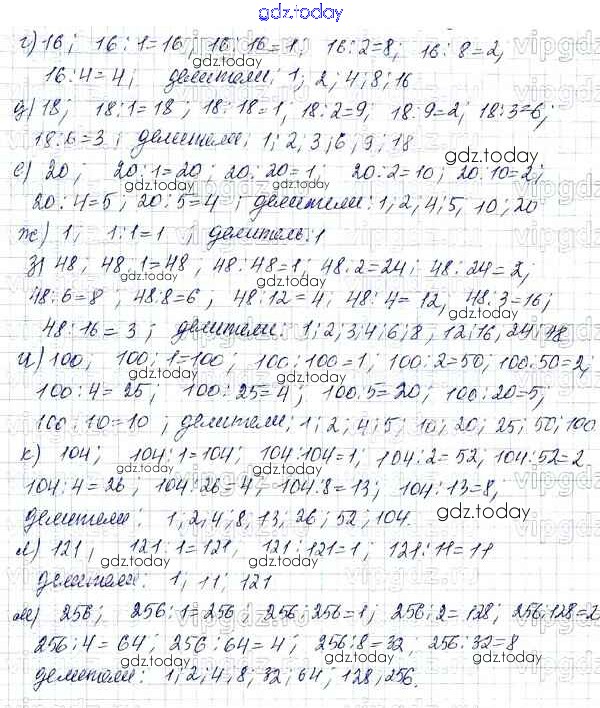 gdz.today
г) 16; 16:1=16; 16:16=1; 16:2=8; 16:8=2;
16:4=4; делители: 1; 2; 4; 8; 16
д) 18; 18:1=18; 18:18=1; 18:2=9; 18:9=2; 18:3=6;
18:6=3; делители: 1; 2; 3; 6; 9; 18
gdz.today
е) 20; 20:1=20; 20:20=1; 20:2=10; 20:10=2;
gdz.today
20:4=5; 20:5=4; делители: 1; 2; 4; 5; 10; 20
gdz.today
ж) 1; 1:1=1; делитель: 1
з) 48; 48:1=48; 48:48=1; 48:2=24; 48:24=2;
gdz.today gdz.today
48:6=8; 48:8=6; 48:12=4; 48:4=12; 48:3=16;
48:16=3; делители: 1; 2; 3; 4; 6; 8; 12; 16; 24; 48
и) 100; 100:1=100; 100:100=1; 100:2=50; 100:50=2;
100:4=25; 100:25=4; 100:5=20; 100:20=5;
gdz.today
100:10=10; делители: 1; 2; 4; 5; 10; 20; 25; 50; 100
gdz.today
к) 104; 104:1=104; 104:104=1; 104:2=52; 104:52=2
gdz.today gdz.today
104:4=26; 104:26=4; 104:8=13; 104:13=8;
делители: 1; 2; 4; 8; 13; 26; 52; 104.
gdz.today
л) 121; 121:1=121; 121:121=1; 121:11=11
gdz.today gdz.today
делители: 1; 11; 121
м) 256; 256:1=256; 256:256=1; 256:2=128; 256:128=2
256:4=64; 256:64=4; 256:8=32; 256:32=8
gdz.today gdz.today
делители: 1; 2; 4; 8; 32; 64; 128; 256.
gdz.today